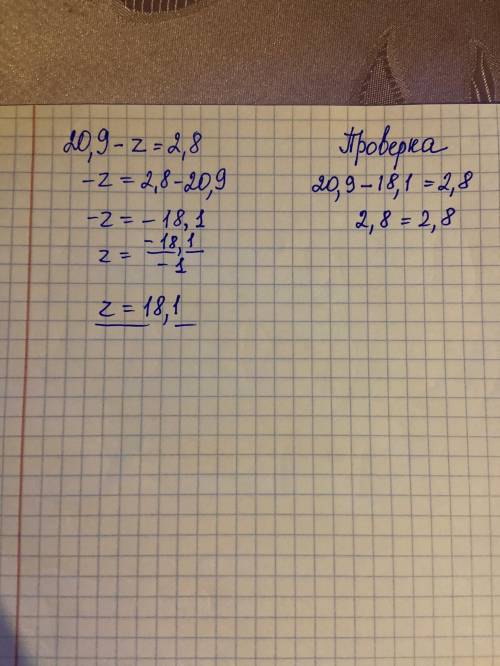 20,9 - z = 2,8
-z = 2,8 - 20,9
-z = -18,1
z = -18,1 / -1
z = 18,1
Проверка
20,9 - 18,1 = 2,8
2,8 = 2,8